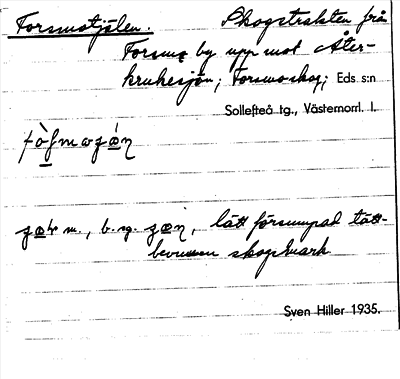 Forsmotjälen. Skogstrakten från
Forsmo by upp mot Åter-
kruhesjön; Forsmoskog; Eds s:n
Sollefteå tg., Västernorrl. l.
m., b. sg. lätt försumpad tätt-
bevuxen skogsmark
Sven Hiller 1935.